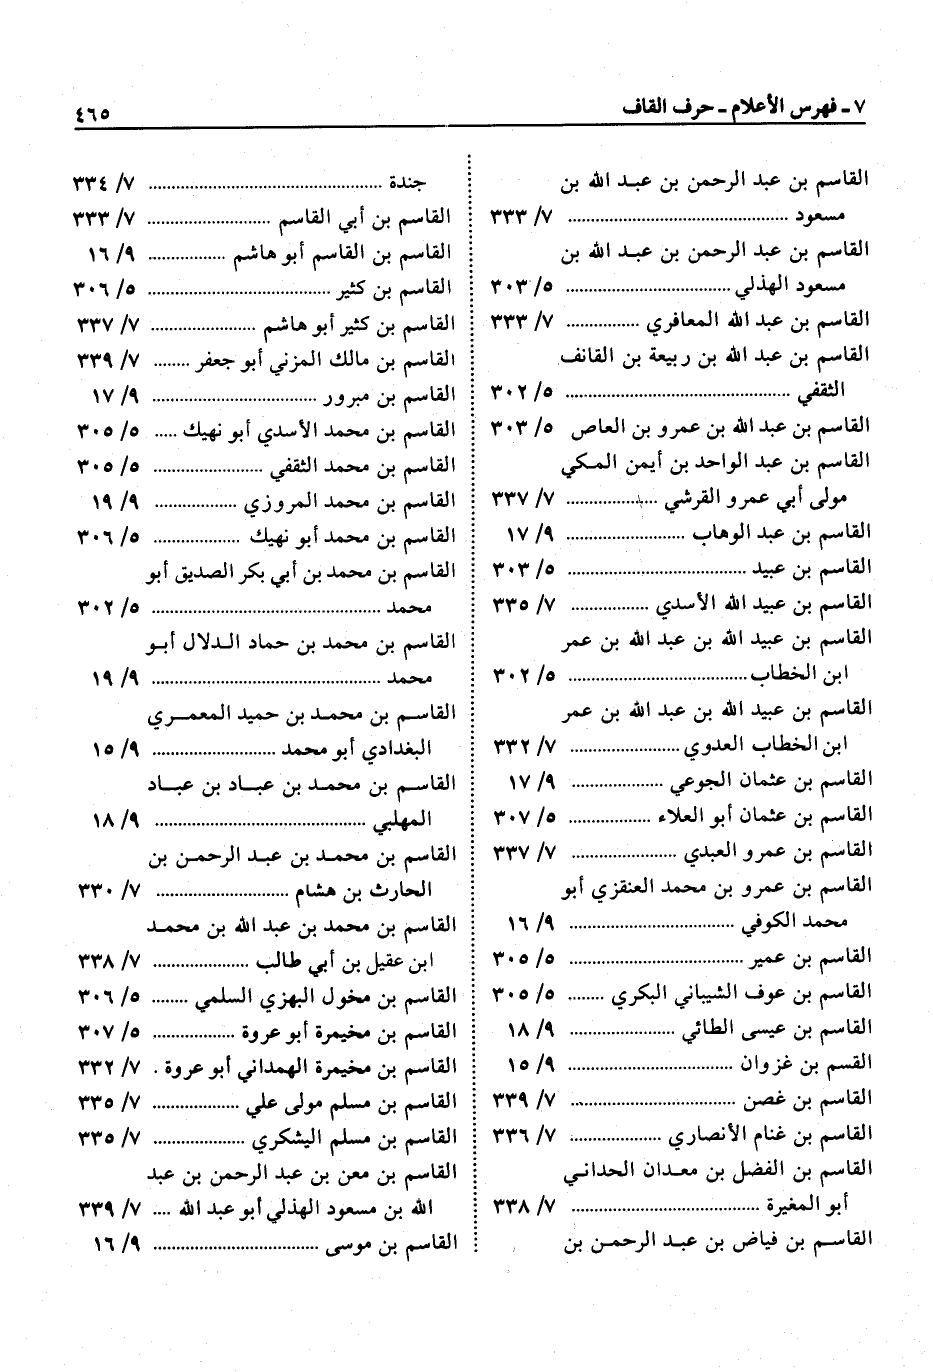 ٧ ـ فهرس الأعلام ـ حرف القاف
٤٦٥
القاسم بن عبد الرحمن بن عبد الله بن
مسعود ........ ٧/ ٣٣٣
القاسم بن عبد الرحمن بن عبد الله بن
مسعود الهذلي ........ ٥/ ٣٠٣
القاسم بن عبد الله المعافري ........ ٧/ ٣٣٣
القاسم بن عبد الله بن ربيعة بن القانف
الثقفي ........ ٥/ ٣٠٢
القاسم بن عبد الله بن عمرو بن العاص ٥/ ٣٠٣
القاسم بن عبد الواحد بن أيمن المكي
مولى أبي عمرو القرشي ........ ٧/ ٣٣٧
القاسم بن عبد الوهاب ........ ٩/ ١٧
القاسم بن عبيد ........ ٥/ ٣٠٣
القاسم بن عبيد الله الأسدي ........ ٧/ ٣٣٥
القاسم بن عبيد الله بن عبد الله بن عمر
ابن الخطاب ........ ٥/ ٣٠٢
القاسم بن عبيد الله بن عبد الله بن عمر
ابن الخطاب العدوي ........ ٧/ ٣٣٢
القاسم بن عثمان الجوعي ........ ٩/ ١٧
القاسم بن عثمان أبو العلاء ........ ٥/ ٣٠٧
القاسم بن عمرو العبدي ........ ٧/ ٣٣٧
القاسم بن عمرو بن محمد العنقزي أبو
محمد الكوفي ........ ٩/ ١٦
القاسم بن عمير ........ ٥/ ٣٠٥
القاسم بن عوف الشيباني البكري ........ ٥/ ٣٠٥
القاسم بن عيسى الطائي ........ ٩/ ١٨
القسم بن غزوان ........ ٩/ ١٥
القاسم بن غصن ........ ٧/ ٣٣٩
القاسم بن غنام الأنصاري ........ ٧/ ٣٣٦
القاسم بن الفضل بن معدان الحداني
أبو المغيرة ........ ٧/ ٣٣٨
القاسم بن فياض بن عبد الرحمن بن
جندة ........ ٧/ ٣٣٤
القاسم بن أبي القاسم ........ ٧/ ٣٣٣
القاسم بن القاسم أبو هاشم ........ ٩/ ١٦
القاسم بن كثير ........ ٥/ ٣٠٦
القاسم بن كثير أبو هاشم ........ ٧/ ٣٣٧
القاسم بن مالك المزني أبو جعفر ........ ٧/ ٣٣٩
القاسم بن مبرور ........ ٩/ ١٧
القاسم بن محمد الأسدي أبو نهيك ..... ٥/ ٣٠٥
القاسم بن محمد الثقفي ........ ٥/ ٣٠٥
القاسم بن محمد المروزي ........ ٩/ ١٩
القاسم بن محمد أبو نهيك ........ ٥/ ٣٠٦
القاسم بن محمد بن أبي بكر الصديق أبو
محمد ........ ٥/ ٣٠٢
القاسم بن محمد بن حماد الدلال أبو
محمد ........ ٩/ ١٩
القاسم بن محمد بن حميد المعمري
البغدادي أبو محمد ........ ٩/ ١٥
القاسم بن محمد بن عباد بن عباد
المهلبي ........ ٩/ ١٨
القاسم بن محمد بن عبد الرحمن بن
الحارث بن هشام ........ ٧/ ٣٣٠
القاسم بن محمد بن عبد الله بن محمد
ابن عقيل بن أبي طالب ........ ٧/ ٣٣٨
القاسم بن مخول البهزي السلمي ........ ٥/ ٣٠٦
القاسم بن مخيمرة أبو عروة ........ ٥/ ٣٠٧
القاسم بن مخيمرة الهمداني أبو عروة . ٧/ ٣٣٢
القاسم بن مسلم مولى علي ........ ٧/ ٣٣٥
القاسم بن مسلم اليشكري ........ ٧/ ٣٣٥
القاسم بن معن بن عبد الرحمن بن عبد
الله بن مسعود الهذلي أبو عبد الله .... ٧/ ٣٣٩
القاسم بن موسى ........ ٩/ ١٦